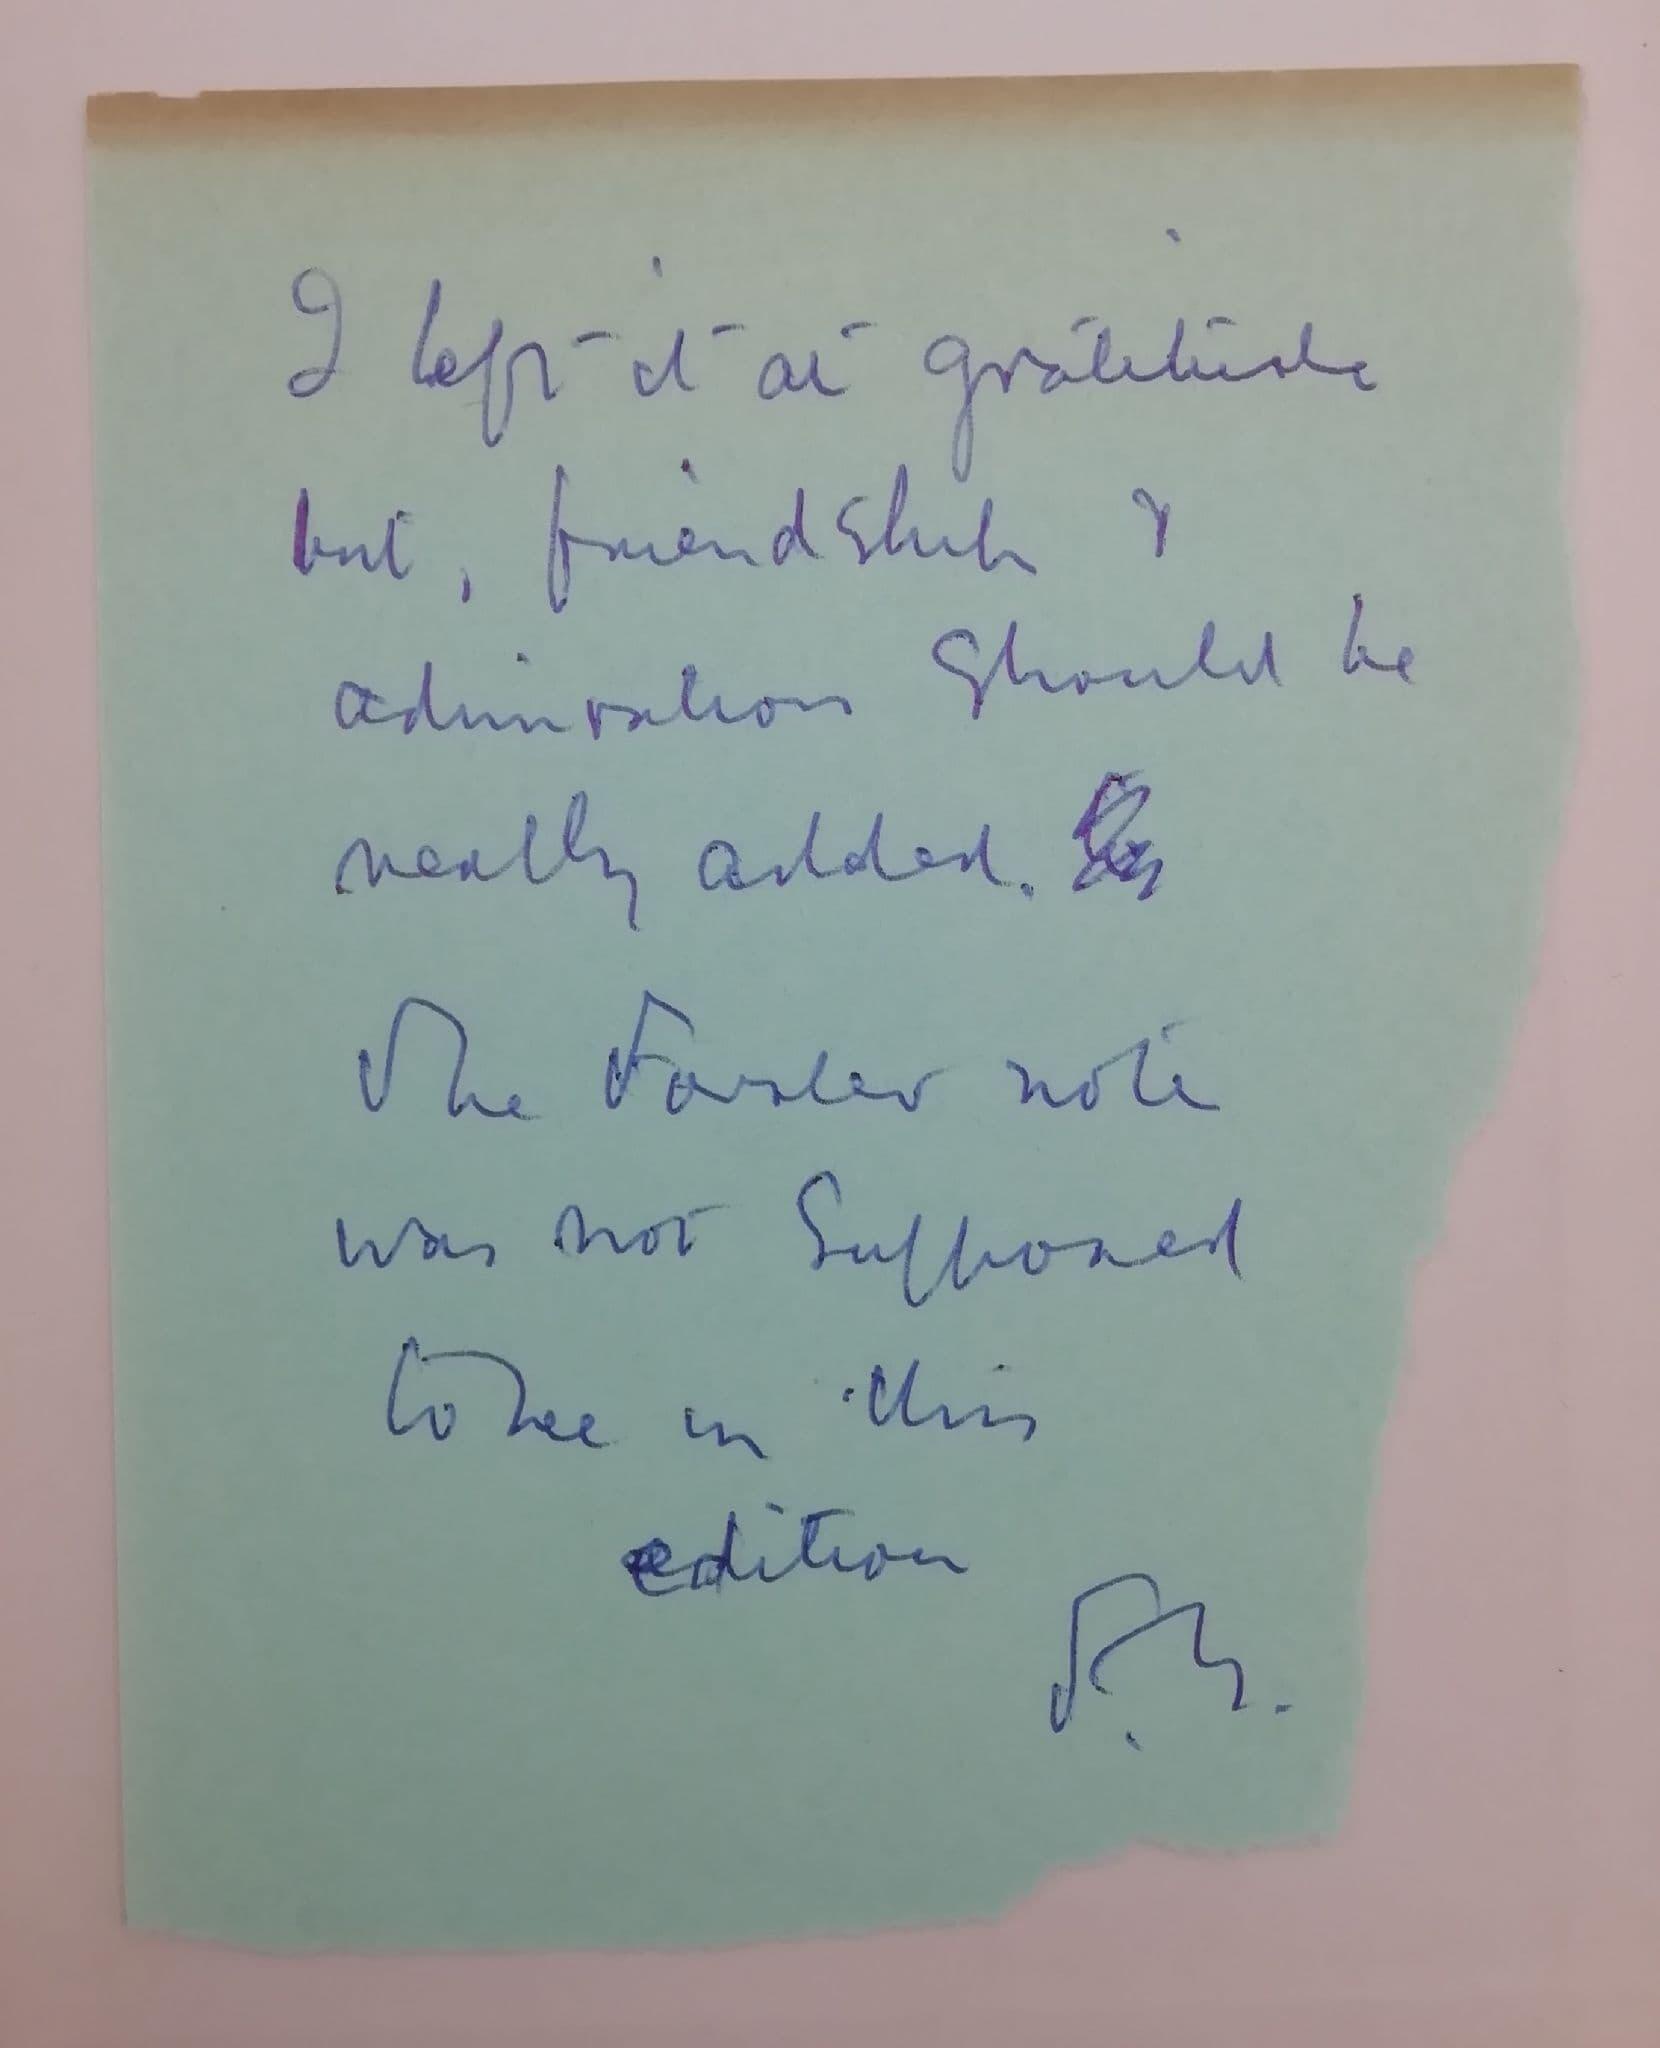 I left it at gratitude
but, friendship &
admiration should be
really added.
The Forster note
was not supposed
to be in this
edition